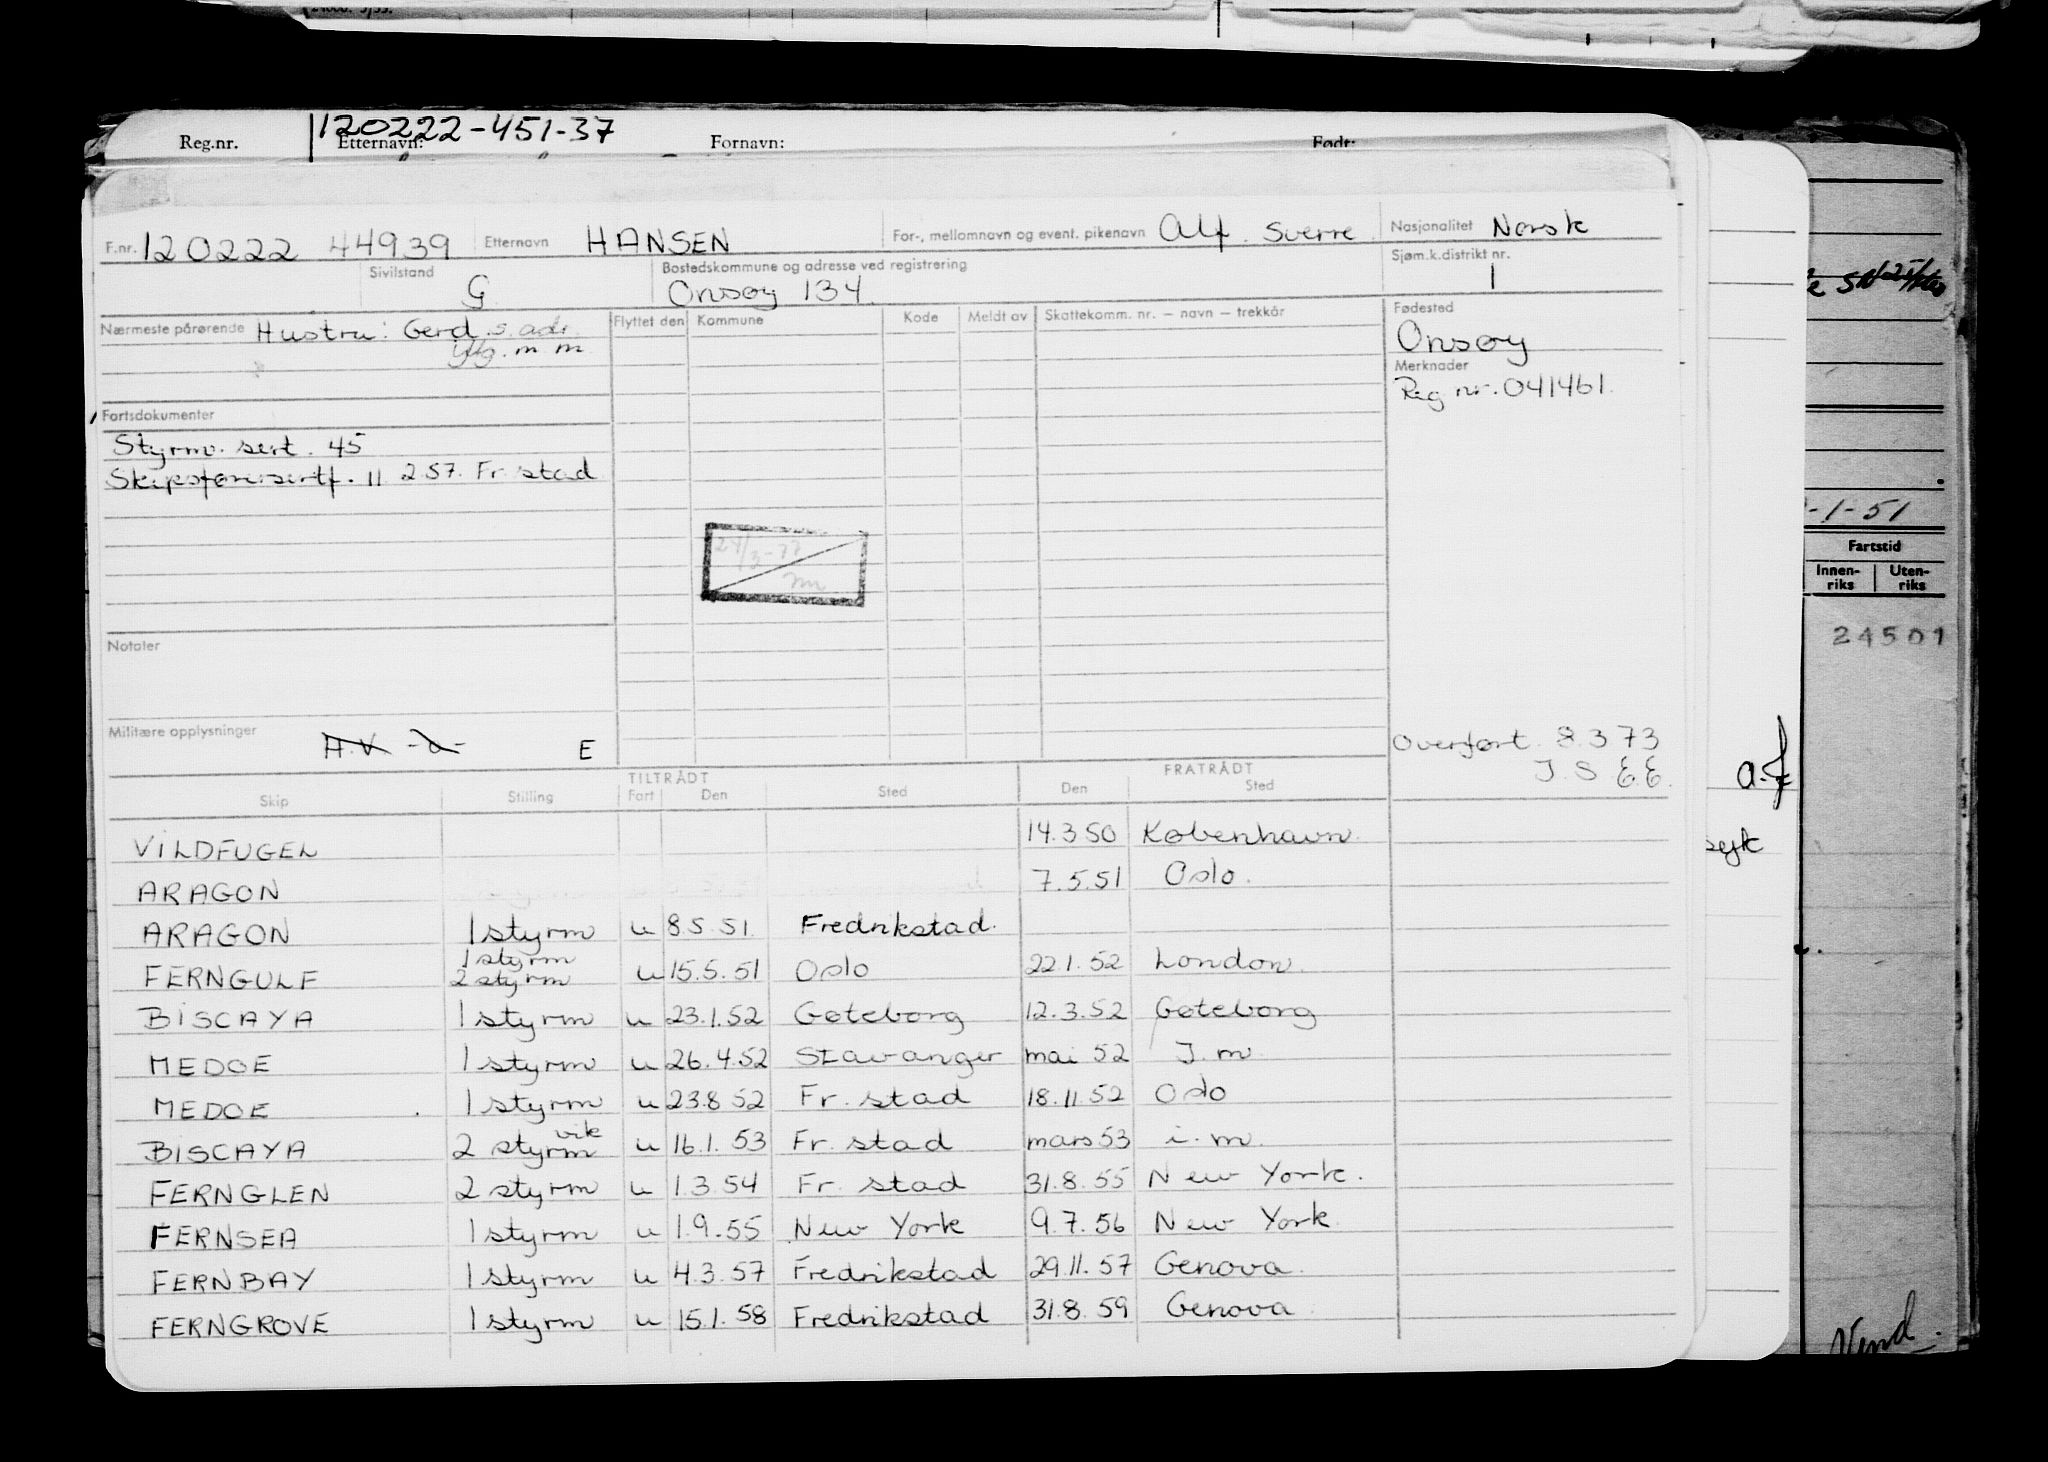 Reg.nr. 120222-451-37 Etternavn: Fornavn: Født:
F.nr. 120222 44939 Etternavn HANSEN For-, mellomnavn og event. pikenavn Alf Sverre Nasjonalitet Norsk
Sivilstand G Bostedskommune og adresse ved registrering Onsøy 134 Sjøm.k.distrikt nr. 1
Nærmeste pårørende Hustru: Gerd s. adr. Flyttet den Kommune Kode Meldt av Skattekomm. nr. – navn – trekkår Fødested
m m Onsøy
Merknader
Reg nr. 041461
Fartsdokumenter
Styrm. sert. 45
Skipsførersertf. 11 2 57. Fr. stad
24/3-77
Notater
Militære opplysninger A.V -a- E
Overført 8.3 73
J. S E.E.
TILTRÅDT FRATRÅDT
Skip Stilling Fart Den Sted Den Sted
VILDFUGEL 14.3 50 København
ARAGON 7.5.51 Oslo.
ARAGON 1 styrm u 8.5.51 Fredrikstad.
1 styrm
FERNGULF 2 styrm u 15.5.51 Oslo 22.1.52 London.
BISCAYA 1 styrm u 23.1.52 Gøteborg 12.3.52 Gøteborg
MEDOE 1 styrm u 26.4.52 Stavanger mai 52 I.m
MEDOE 1 styrm u 23.8 52 Fr. stad 18.11.52 Oslo
vik
BISCAYA 2 styrm u 16.1.53 Fr. stad mars 53 i.m.
FERNGLEN 2 styrm u 1.3.54 Fr. stad 31.8.55 New York.
FERNSEA 1 styrm u 1.9.55 New York 9.7.56 New York
FERNBAY 1 styrm u 4.3.57 Fredrikstad 29.11.57 Genova.
FERNGROVE 1 styrm u 15.1.58 Fredrikstad 31.8.59 Genova
-1-51
Fartstid
Innen-riks Uten-riks
24501